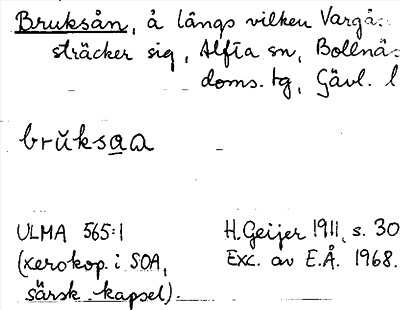 Bruksån, å längs vilken Vargå:
sträcker sig, Alfta sn, Bollnäs
doms. tg, Gävl. l
brŭksaa
ULMA 565:1 H. Geijer 1911, s. 30
(xerokop. i SOA, Exc. av E.Å. 1968.
särsk. kapsel).